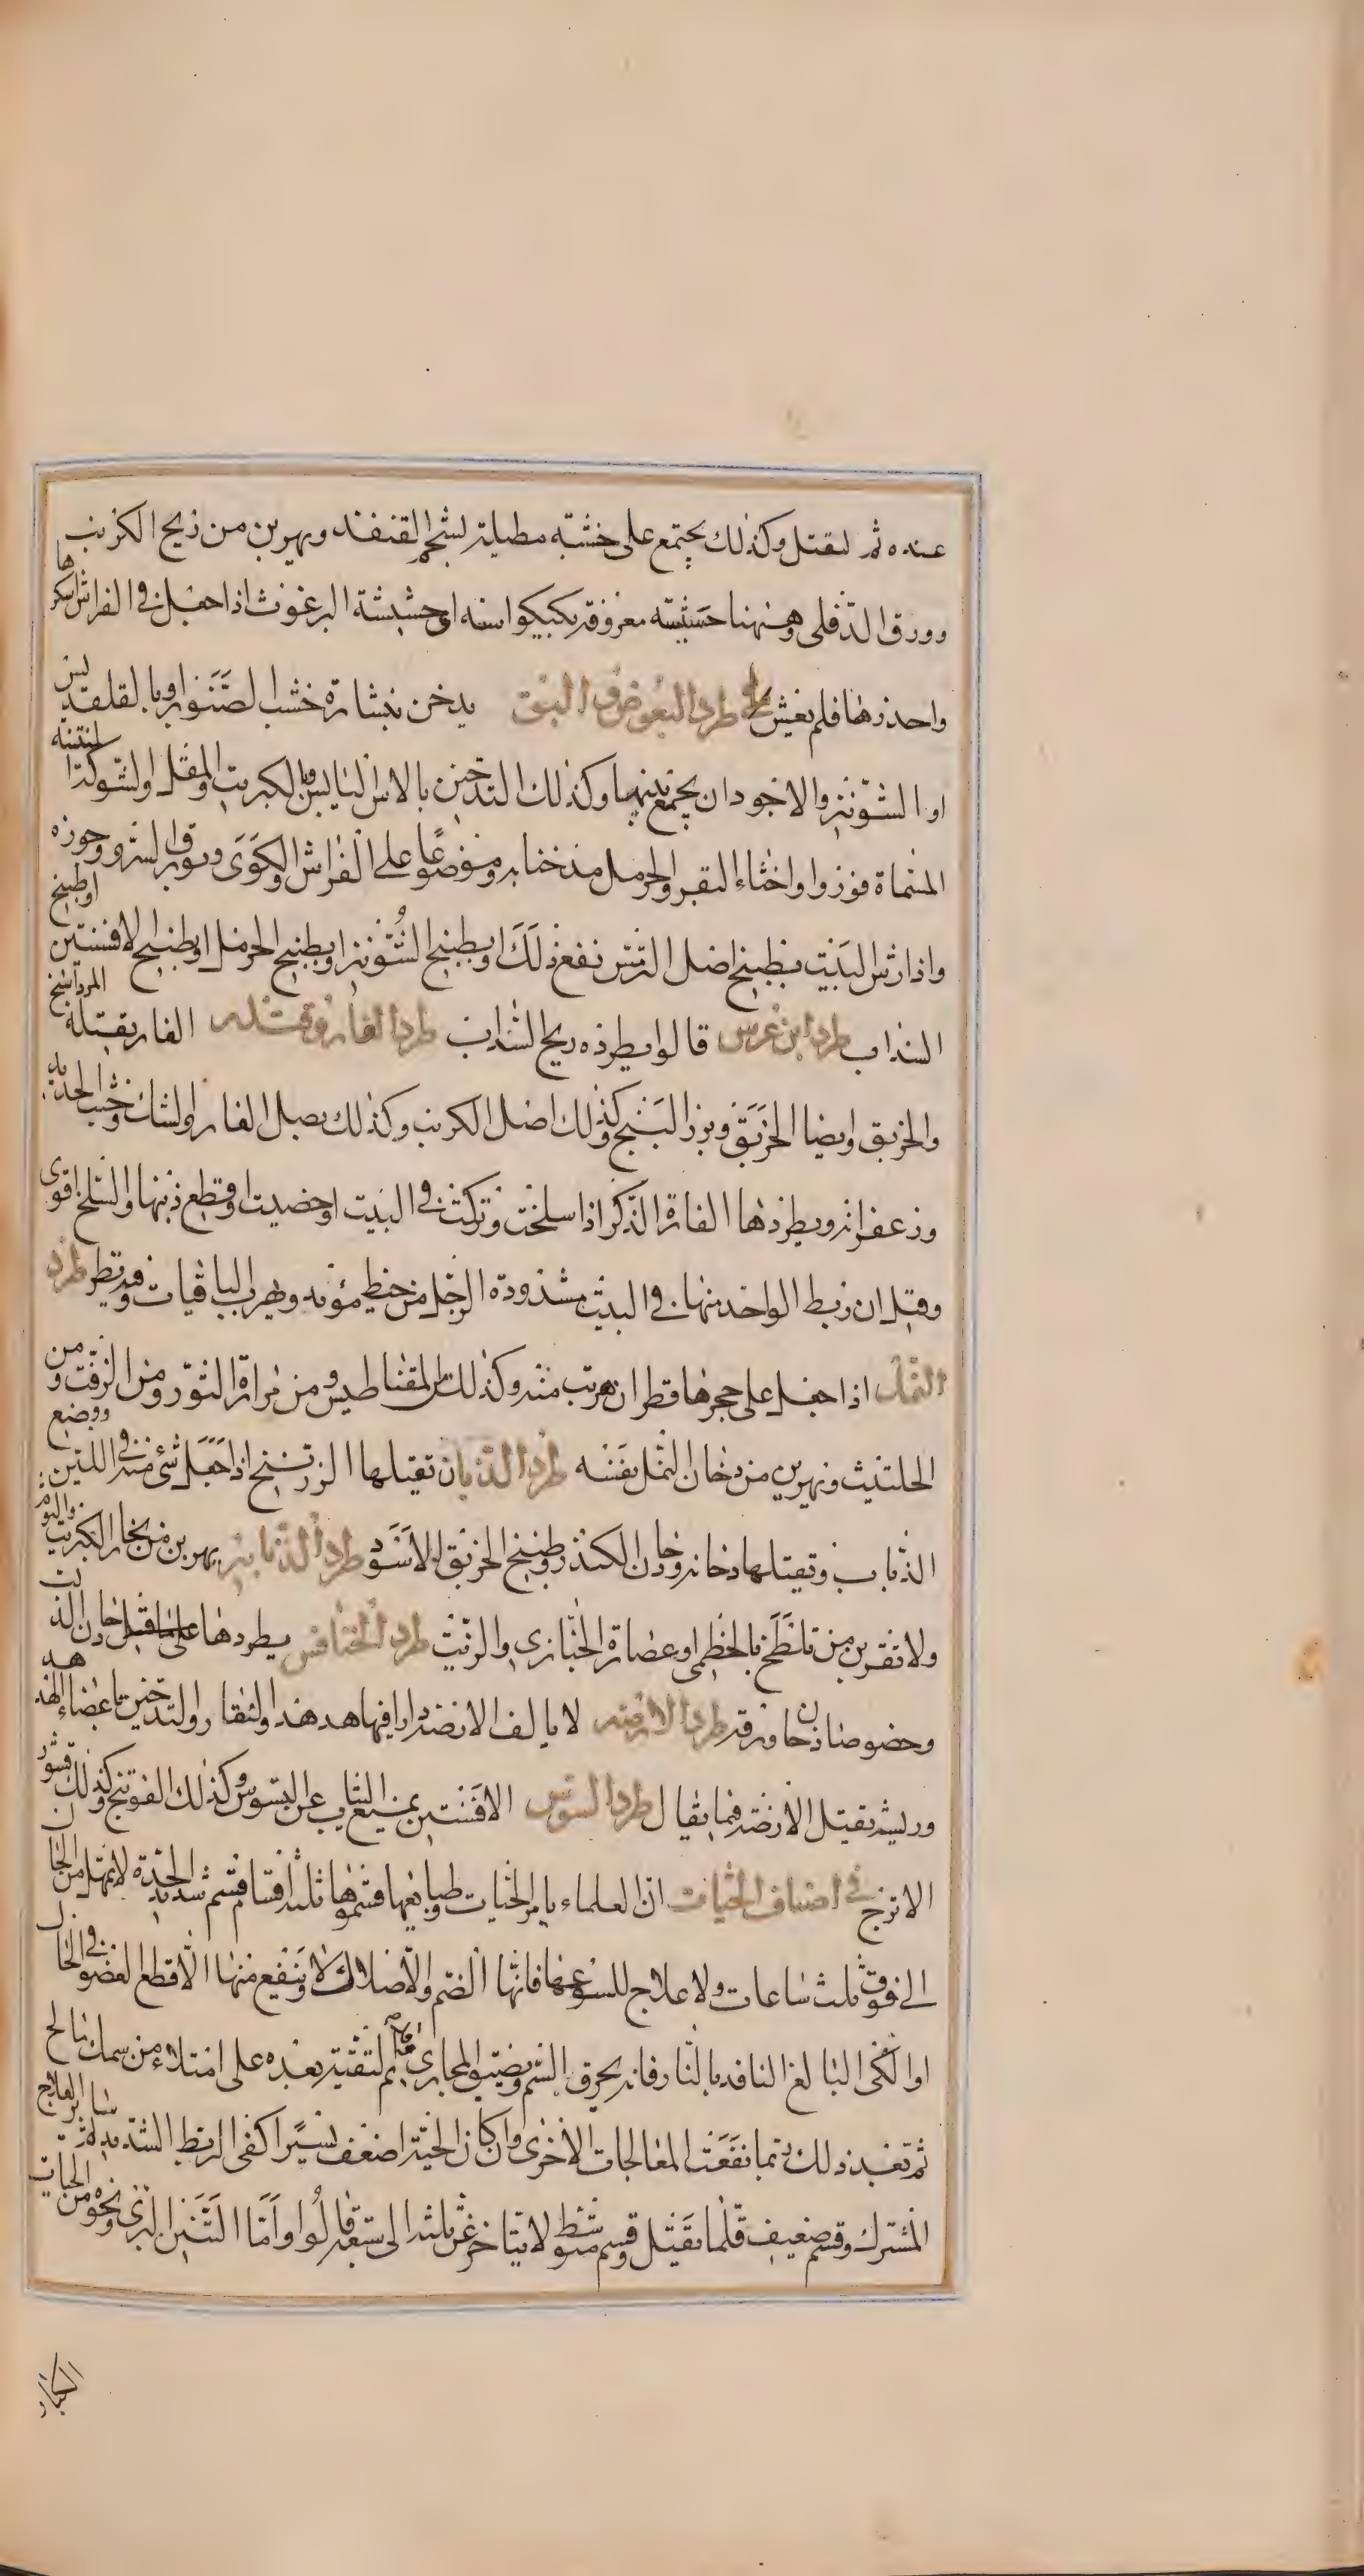 عنده ثم لتقتل وكذلك يجتمع على خشبة مطلية بشحم القنفذ ويهربن من ريح الكرنب
وورق الدفلى وههنا حشيشة معروفة بكيكوانه اى حشيشة البرغوث اذا جعل فى الفراش اسكرها
واخدرها فلم يعش فى طرد البعوض والبق يدخن بنشارة خشب الصنوبر او بالقلقديس
او الشونيز والاجود ان يجمع بينها وكذلك التدخين بالاس اليابس والكبريت والمقل والشوكة المنتنة
المسماة قونوزا واخثاء البقر والحرمل مدخنا به وموضوعا على الفراش والكوى وبورق السرو وجوزه
واذا رش البيت بطبيخ اصل الترمس نفع ذلك او بطبيخ الشونيز او بطبيخ الحرمل او بطبيخ الافسنتين او طبيخ
السداب طرد ابن عرس قالوا يطرده ريح السداب طرد الفار وقتله الفار يقتله المرداسنج
والخربق وايضا الخربق وبزر البنج وكذلك اصل الكرنب وكذلك بصل الفار والشك وخبث الحديد
وزعفرانه ويطردها الفارة الذكر اذا سلخت وتركت فى البيت او خصيت او قطع ذنبها والسلخ اقوى
وقيل ان ربط الواحد منها فى البيت مشدودة الرجل من خيط مؤنه ويهرب الباقيات وفيه نظر طرد
النمل اذا جعل على حجرها قطران هربت منه وكذلك من المقناطيس ومن مرارة الثور ومن الزفت ومن
الحلتيت ويهربن من دخان النمل نفسه طرد الذبان تقتلها الزرنيخ اذا جعل شئ منه فى اللبن ووضع
الذباب وتقتلها دخانه ودخان الكندر وطبيخ الخربق الاسود طرد الذنابير يهربن من بخار الكبريت والثوم
ولا تقربن من تلطخ بالخطمى او عصارة الخبازى والزيت طرد الخنافس يطردها على ما قيل دخان الدلب
وخصوصا دخان ورقه طرد الارضه لا يالف الارضه دارا فيها هدهد والتقار والتدخين باعضاء الهدهد
وريشه يقتل الارضه فيما يقال طرد السوس الافسنتين يمنع الثياب عن التسوس وكذلك الفوتنج وكذلك قشور
الاترج فى اصناف الحيات ان العلماء بامر الحيات وطبايعها قسموها ثلثة اقسام قسم شديد الحدة لا تمهل من الحال
الى فوق ثلث ساعات ولا علاج للسوعها فانها الصم والاصلال ولا ينفع منها الا قطع العضو فى الحال
او الكى البالغ النافذ بالنار فانه يحرق السم ويضيق المجارى ثم لتقئية بعده على امتلاء من سمك مالح
ثم بعد ذلك ربما نفعت المعالجات الاخرى وان كان الحية اضعف يسيرا كفى الربط الشديد ثم سائر العلاج
المشترك وقسم ضعيف قلما تقتل وقسم متوسط لا يتاخر عن ثلثة الى سبعة قالوا واما التنين البرى ونحوه من الحيات
الكبار